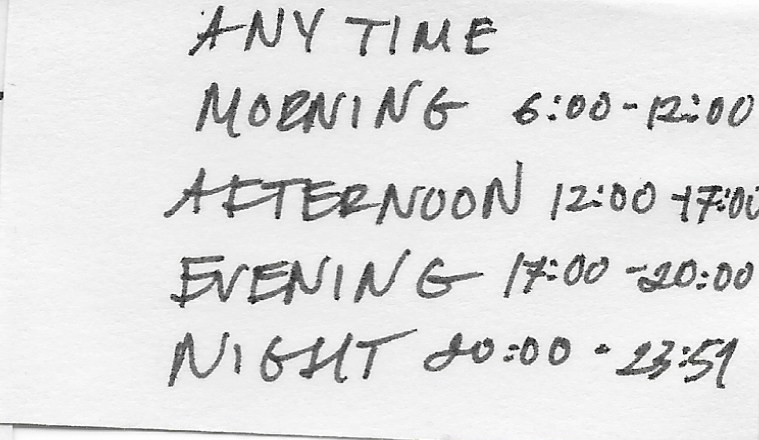 ANY TIME
MORNING 6:00-12:00
AFTERNOON 12:00-17:00
EVENING 17:00-20:00
NIGHT 20:00-23:59